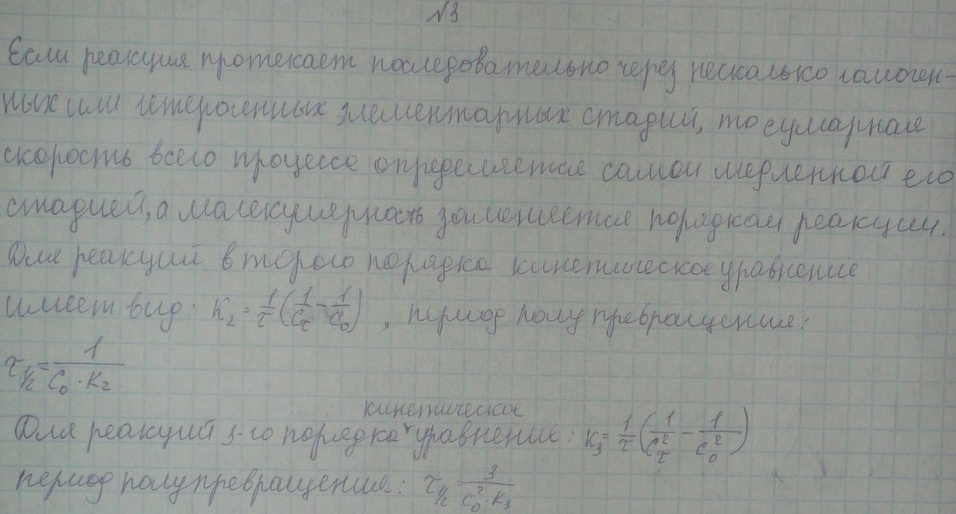 №3
Если реакция протекает последовательно через несколько гамоген-
ных или гетерогенных элементарных стадий, то сумарная
скорость всего процесса определяется самой медленной его
стадией, а малекулярность заменяется порядком реакции.
Для реакций второго порядка кинетическое уравнение
имеет вид: K₂ = 1/τ (1/C_τ - 1/C₀), период полупревращения:
τ½ = 1/(C₀ · K₂)
кинетическое
Для реакций 3-го порядка уравнение: K₃ = 1/τ (1/C_τ² - 1/C₀²)
период полупревращения: τ½ = 3/(C₀² · K₃)